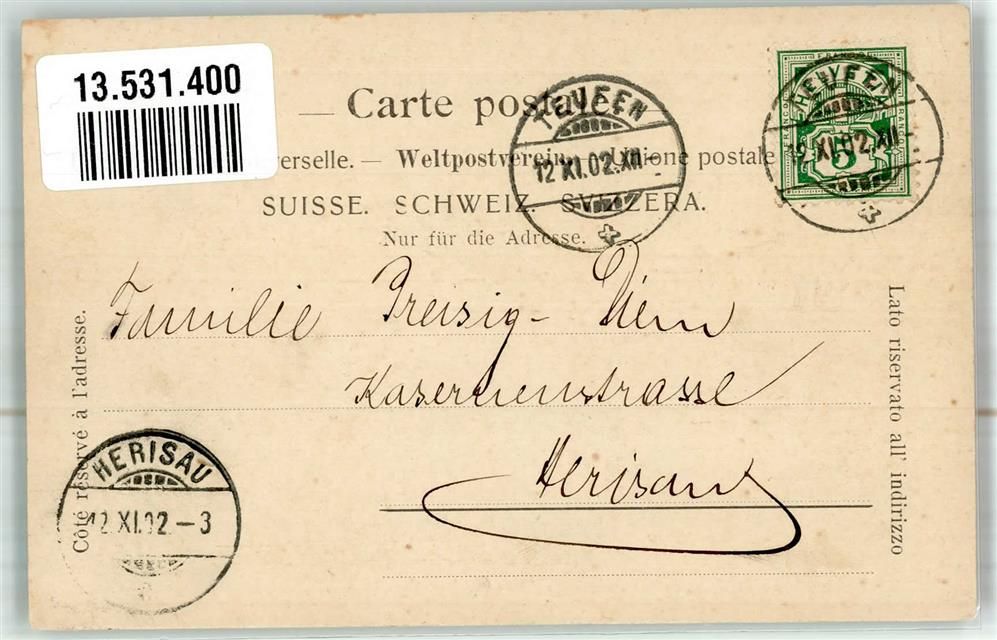 13.531.400
Carte postale
TEUFEN
12 XI.02.XII-
TEUFEN
12 XI.02.XII
FRANCO
5
erselle. — Weltpostverein. — Unione postale
SUISSE. SCHWEIZ. SVIZZERA.
Nur für die Adresse.
Familie Preisig- Diem
Kasernenstrasse
Herisau
Côté réservé à l'adresse.
Lato riservato all' indirizzo
HERISAU
12 XI.02.-3